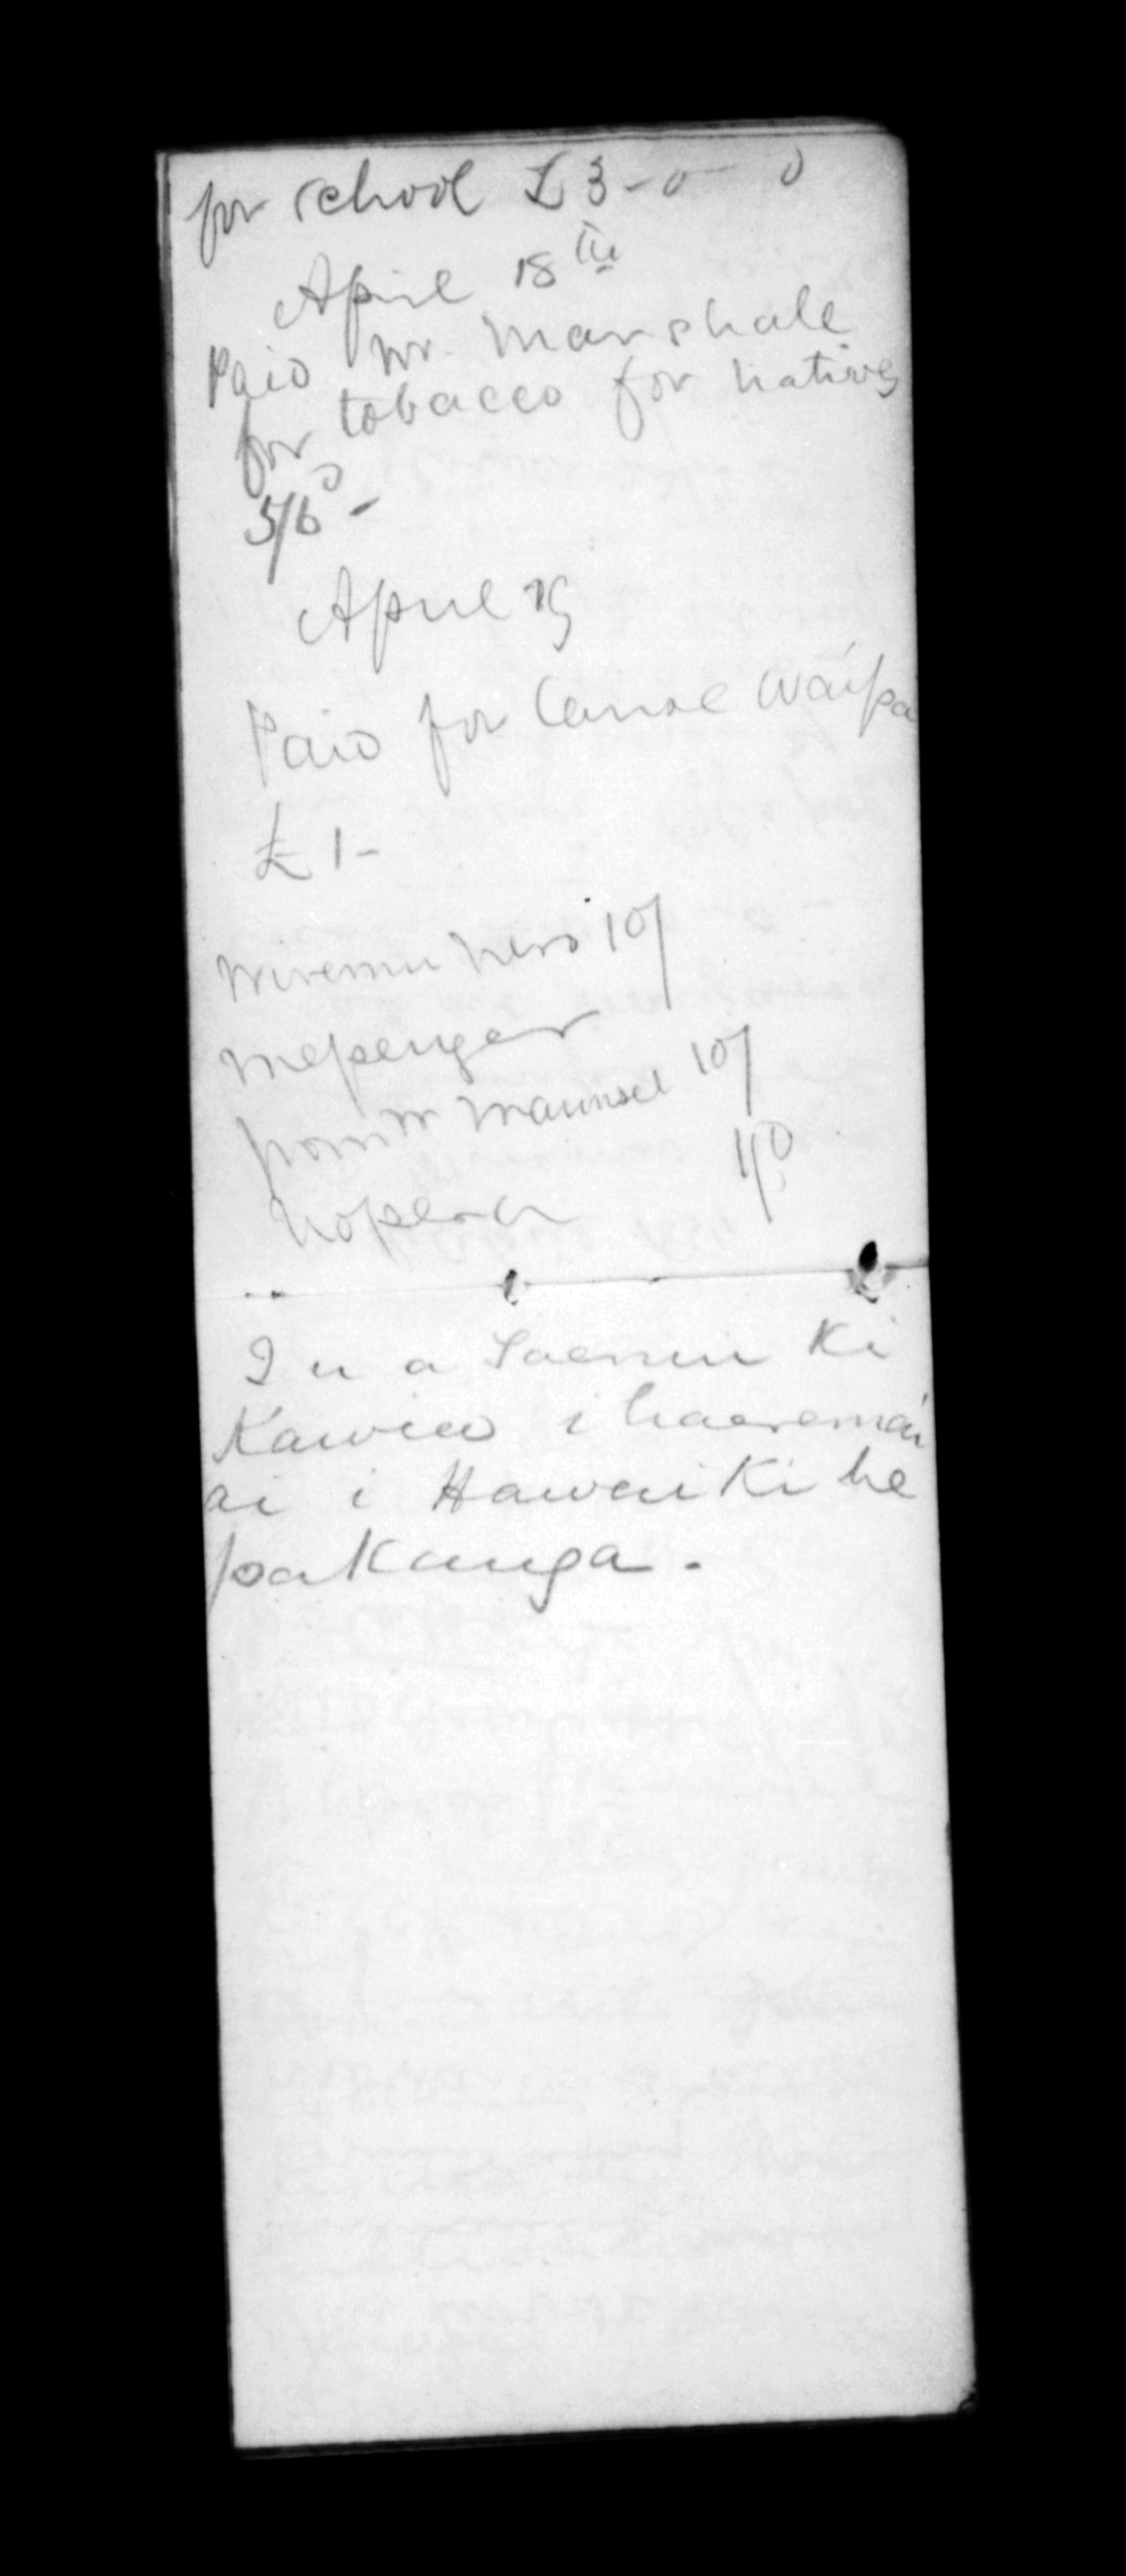 for school £3-0-0
April 18th
Paid Mr. Marshall
for tobacco for natives
5/6 -
April 19
Paid for Canoe Waipa
£1-
Wiremu Nero 10/
Messenger
from Mr Maunsel 10/
Hopera
I u a Taenui Ki
Kawia i haeremai
ai i Hawaiki he
pakanga.